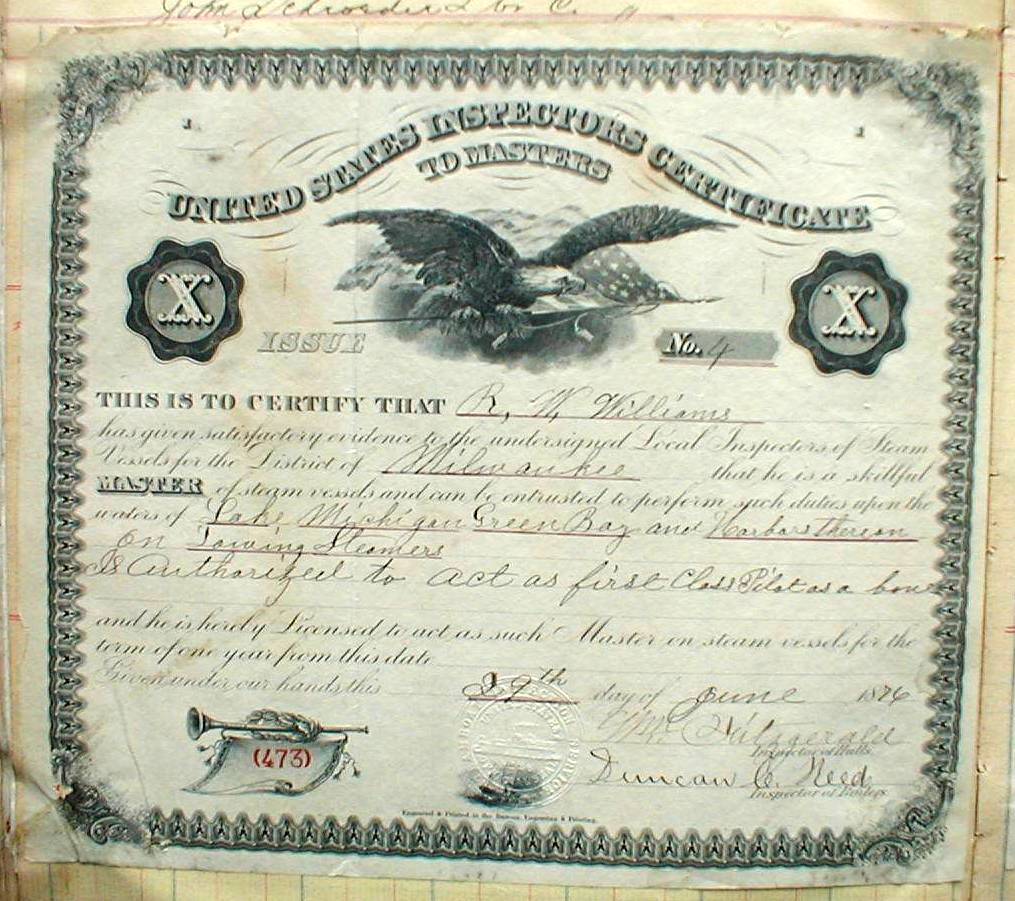 John Schroeder Lbr C.
1 1
UNITED STATES INSPECTORS CERTIFICATE
TO MASTERS
X X
ISSUE No. 4
THIS IS TO CERTIFY THAT R. W. Williams
has given satisfactory evidence to the undersigned Local Inspectors of Steam
Vessels for the District of Milwaukee that he is a skillful
MASTER of steam vessels and can be entrusted to perform such duties upon the
waters of Lake Michigan Green Bay and Harbors thereon
On Towing Steamers
Is Authorized to act as first Class Pilot as a bove
and he is hereby Licensed to act as such Master on steam vessels for the
term of one year from this date
Given under our hands this 29th day of June 1876
Wm. Fitzgerald
Inspector of Hulls
(473)
Duncan C. Reed
Inspector of Boilers
Engraved & Printed at the Bureau, Engraving & Printing.